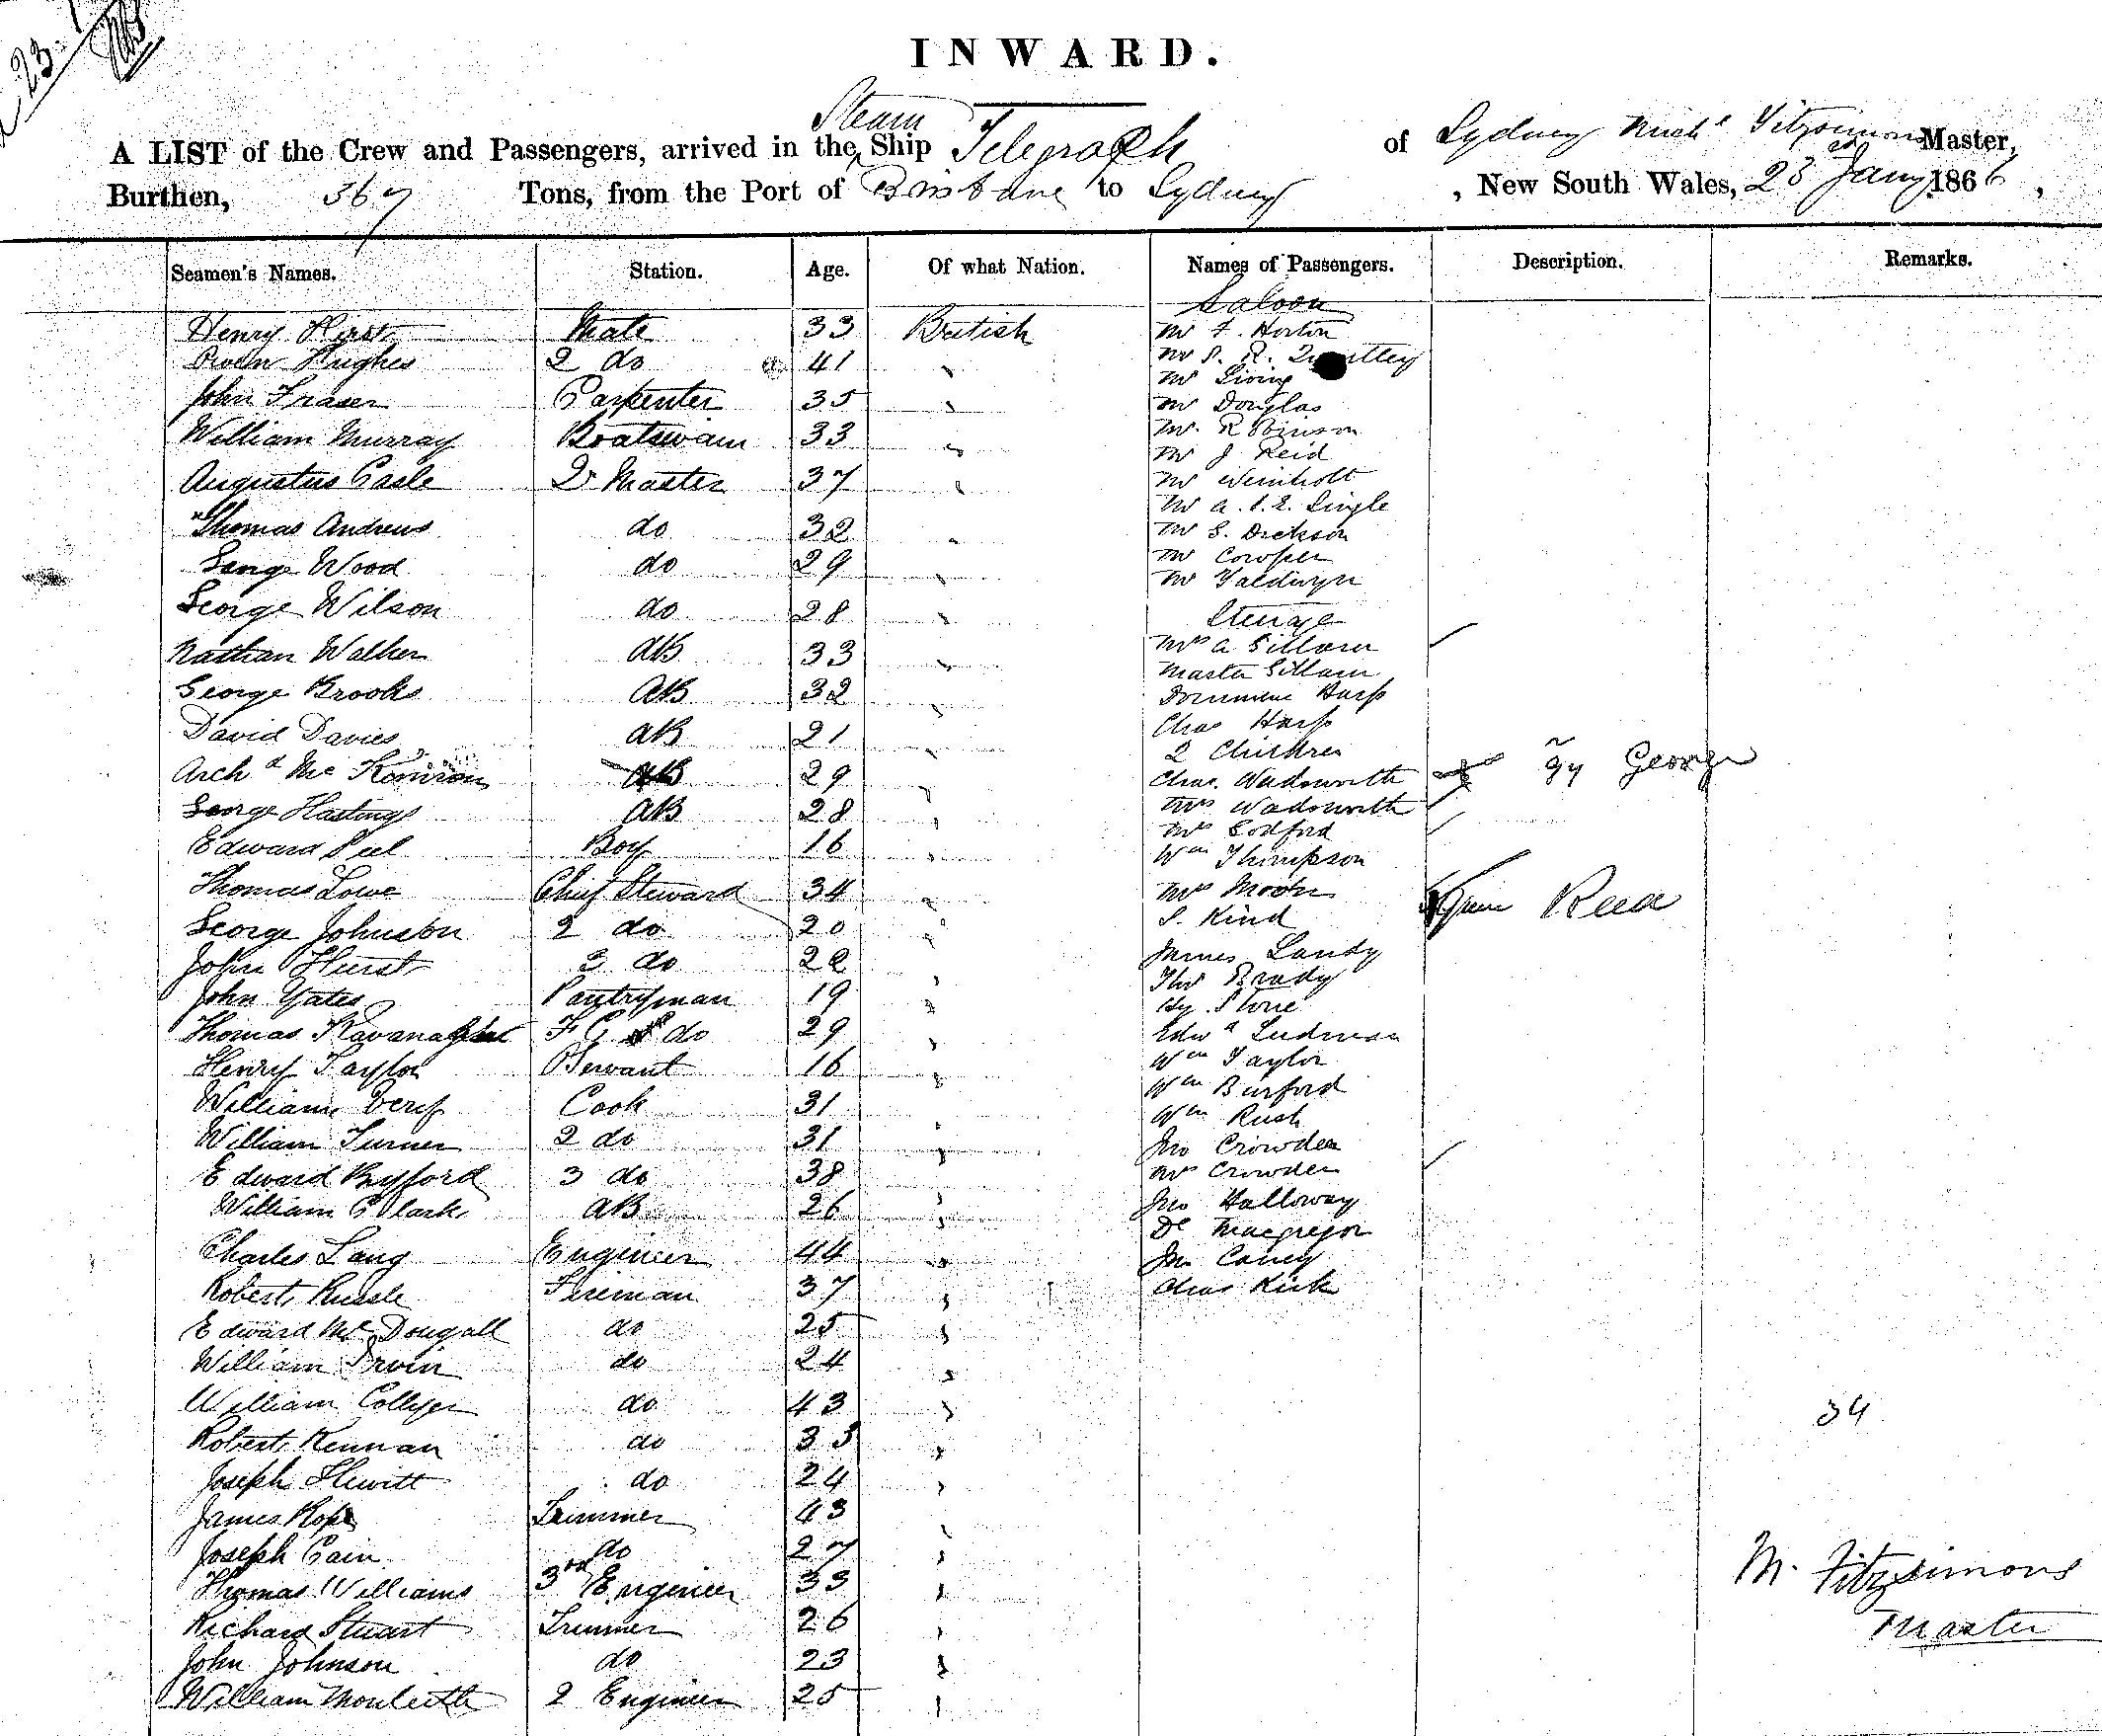 23
INWARD.
A LIST of the Crew and Passengers, arrived in the Steam Ship Telegraph of Sydney Mich^l Fitzsimons Master,
Burthen, 367 Tons, from the Port of Brisbane to Sydney, New South Wales, 23 Jany 1866,
Seamen's Names. Station. Age. Of what Nation. Names of Passengers. Description. Remarks.
Saloon
Henry Hirst Mate 33 British Mr F. Horton
Owen Hughes 2 do 41 Mr P. R.
Mr Living
John Fraser Carpenter 35 Mr Douglas
William Murray Boatswain 33 Mr Robinson
Mr J Reid
Augustus Casle Qr Master 37 Mr Weinholt
Mr A.
Thomas Andrews do 32 Mr S. Dickson
Mr Cowper
George Wood do 29 Mr Yaldwyn
George Wilson do 28 Steerage
Nathan Walker AB 33 Mrs A Gillam
Master Gillam
George Brooks AB 32 Harp
Chas Harp
David Davies AB 21 2 Children
Arch^d Mc AB 29 Chas. Wadsworth George
George Hastings AB 28 Mrs Wadsworth
Edward Peel Boy 16 Mrs Godford
Wm Thompson
Thomas Lowe Chief Steward 34 Mrs Moore
George Johnston 2 do 20 P. Kind
John Hurst 3 do 22 James Landy
Thos Brady
John Yates Pantryman 19 Hy. Stone
Thomas Kavanagh F C do 29 Edw^d Ludman
Henry Taylor Servant 16 Wm Taylor
Wm Burford
William Very Cook 31 Wm Rush
William Turner 2 do 31 Jno Crowden
Edward Byfford 3 do 38 Mrs Crowden
William Clark AB 26 Jno Halloway
Dr Macgregor
Charles Lang Engineer 44 Jno Caney
Robert Russle Fireman 37 Chas Kirk
Edward McDougall do 25
William Irvin do 24
William Collyer do 43 34
Robert Kennan do 33
Joseph Hewitt do 24
James Rope Trimmer 43
Joseph Cain do 27
Thomas Williams 3rd Engineer 33 M. Fitzsimons
Richard Stuart Trimmer 26 Master
John Johnson do 23
William Monteith 2 Engineer 25